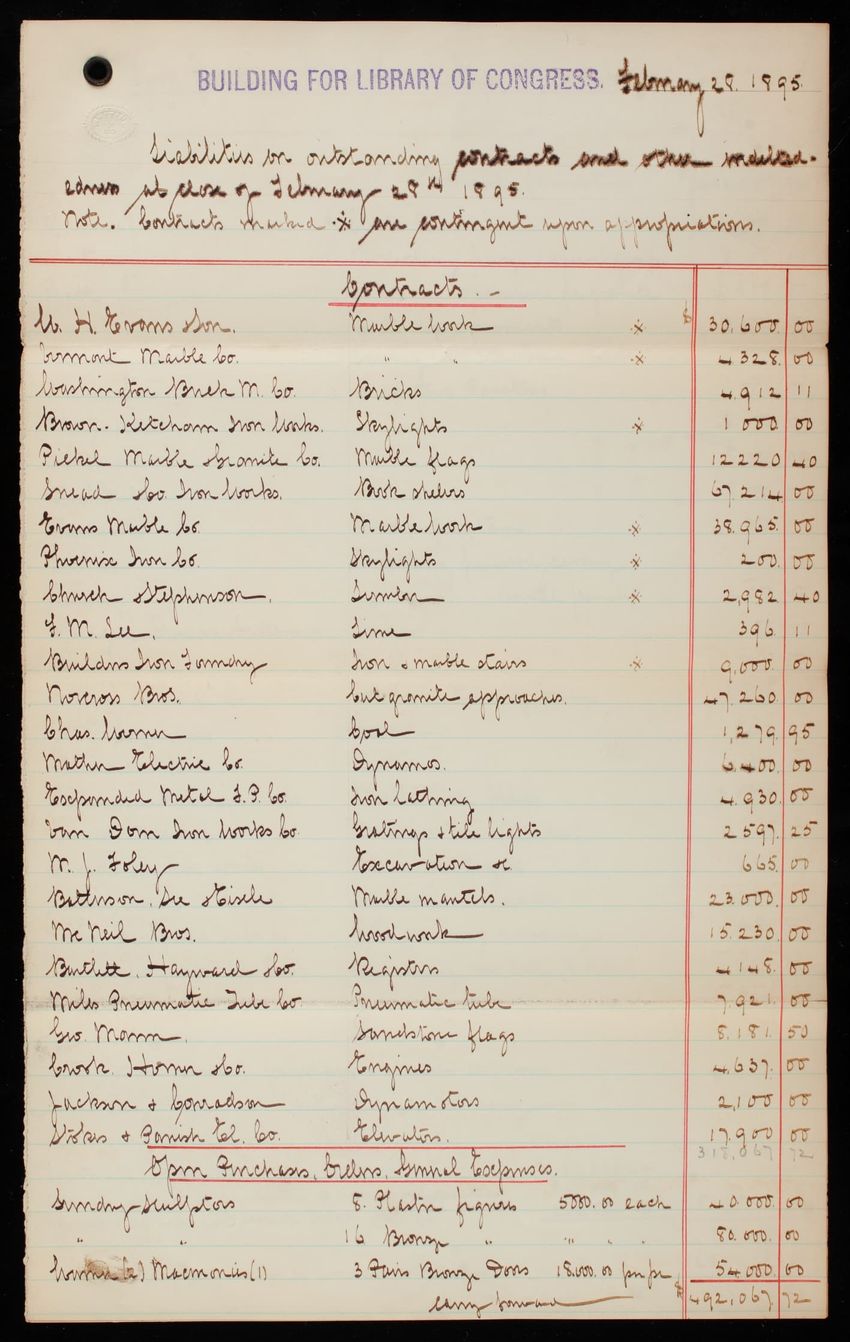 BUILDING FOR LIBRARY OF CONGRESS. February 28. 1895.
Liabilities on outstanding contracts and other indebted-
edness at close of February 28th 1895.
Note. Contracts marked ※ are contingent upon appropriations.
Contracts. –
W. H. Evans & Son. Marble work ※ $ 30,600. 00
Vermont Marble Co. " " ※ 4 328. 00
Washington Brick M. Co. Bricks 4,912 11
Brown-Ketcham Iron Works. Skylights ※ 1 000 00
Pickel Marble & Granite Co. Marble flags 12220 40
Snead & Co. Iron Works. Book shelves 67.214 00
Evans Marble Co. Marble work ※ 38.965. 00
Phoenix Iron Co. Skylights ※ 200. 00
Church & Stephenson. Lumber ※ 2,982 40
F. M. Lee. Lime 396 11
Builders Iron Foundry Iron & marble stairs ※ 9,000. 00
Norcross Bros. Cut granite approaches. 47.260 00
Chas. Werner Coal 1,279. 95
Mather Electric Co. Dynamos. 6,400. 00
Expanded Metal F. P. Co. Iron lathing 4.930. 00
Van Dorn Iron Works Co. Gratings & tile lights 2 597. 25
M. J. Foley Excavation &c 665. 00
Batterson, See & Eisele Marble mantels. 23.000. 00
McNeil Bros. Woodwork 15.230. 00
Bartlett, Hayward & Co. Registers 4148. 00
Miles Pneumatic Tube Co. Pneumatic tube 7.921. 00
Geo. Mann. Sandstone flags 8.181. 50
Crook, Horner & Co. Engines 4,637. 00
Jackson & Conradson Dynamotors 2,100 00
Stokes & Parrish El. Co. Elevators. 17.900 00
318,067 72
Open Purchases, Orders, General Expenses.
Sundry Sculptors 8. Plaster figures 5000.00 each 40.000. 00
" " 16 Bronze " " " " 80.000. 00
Warner (2) Macmonnies (1) 3 Pairs Bronze Doors 18.000.00 per pr. 54000. 00
carry forward $ 492,067. 72